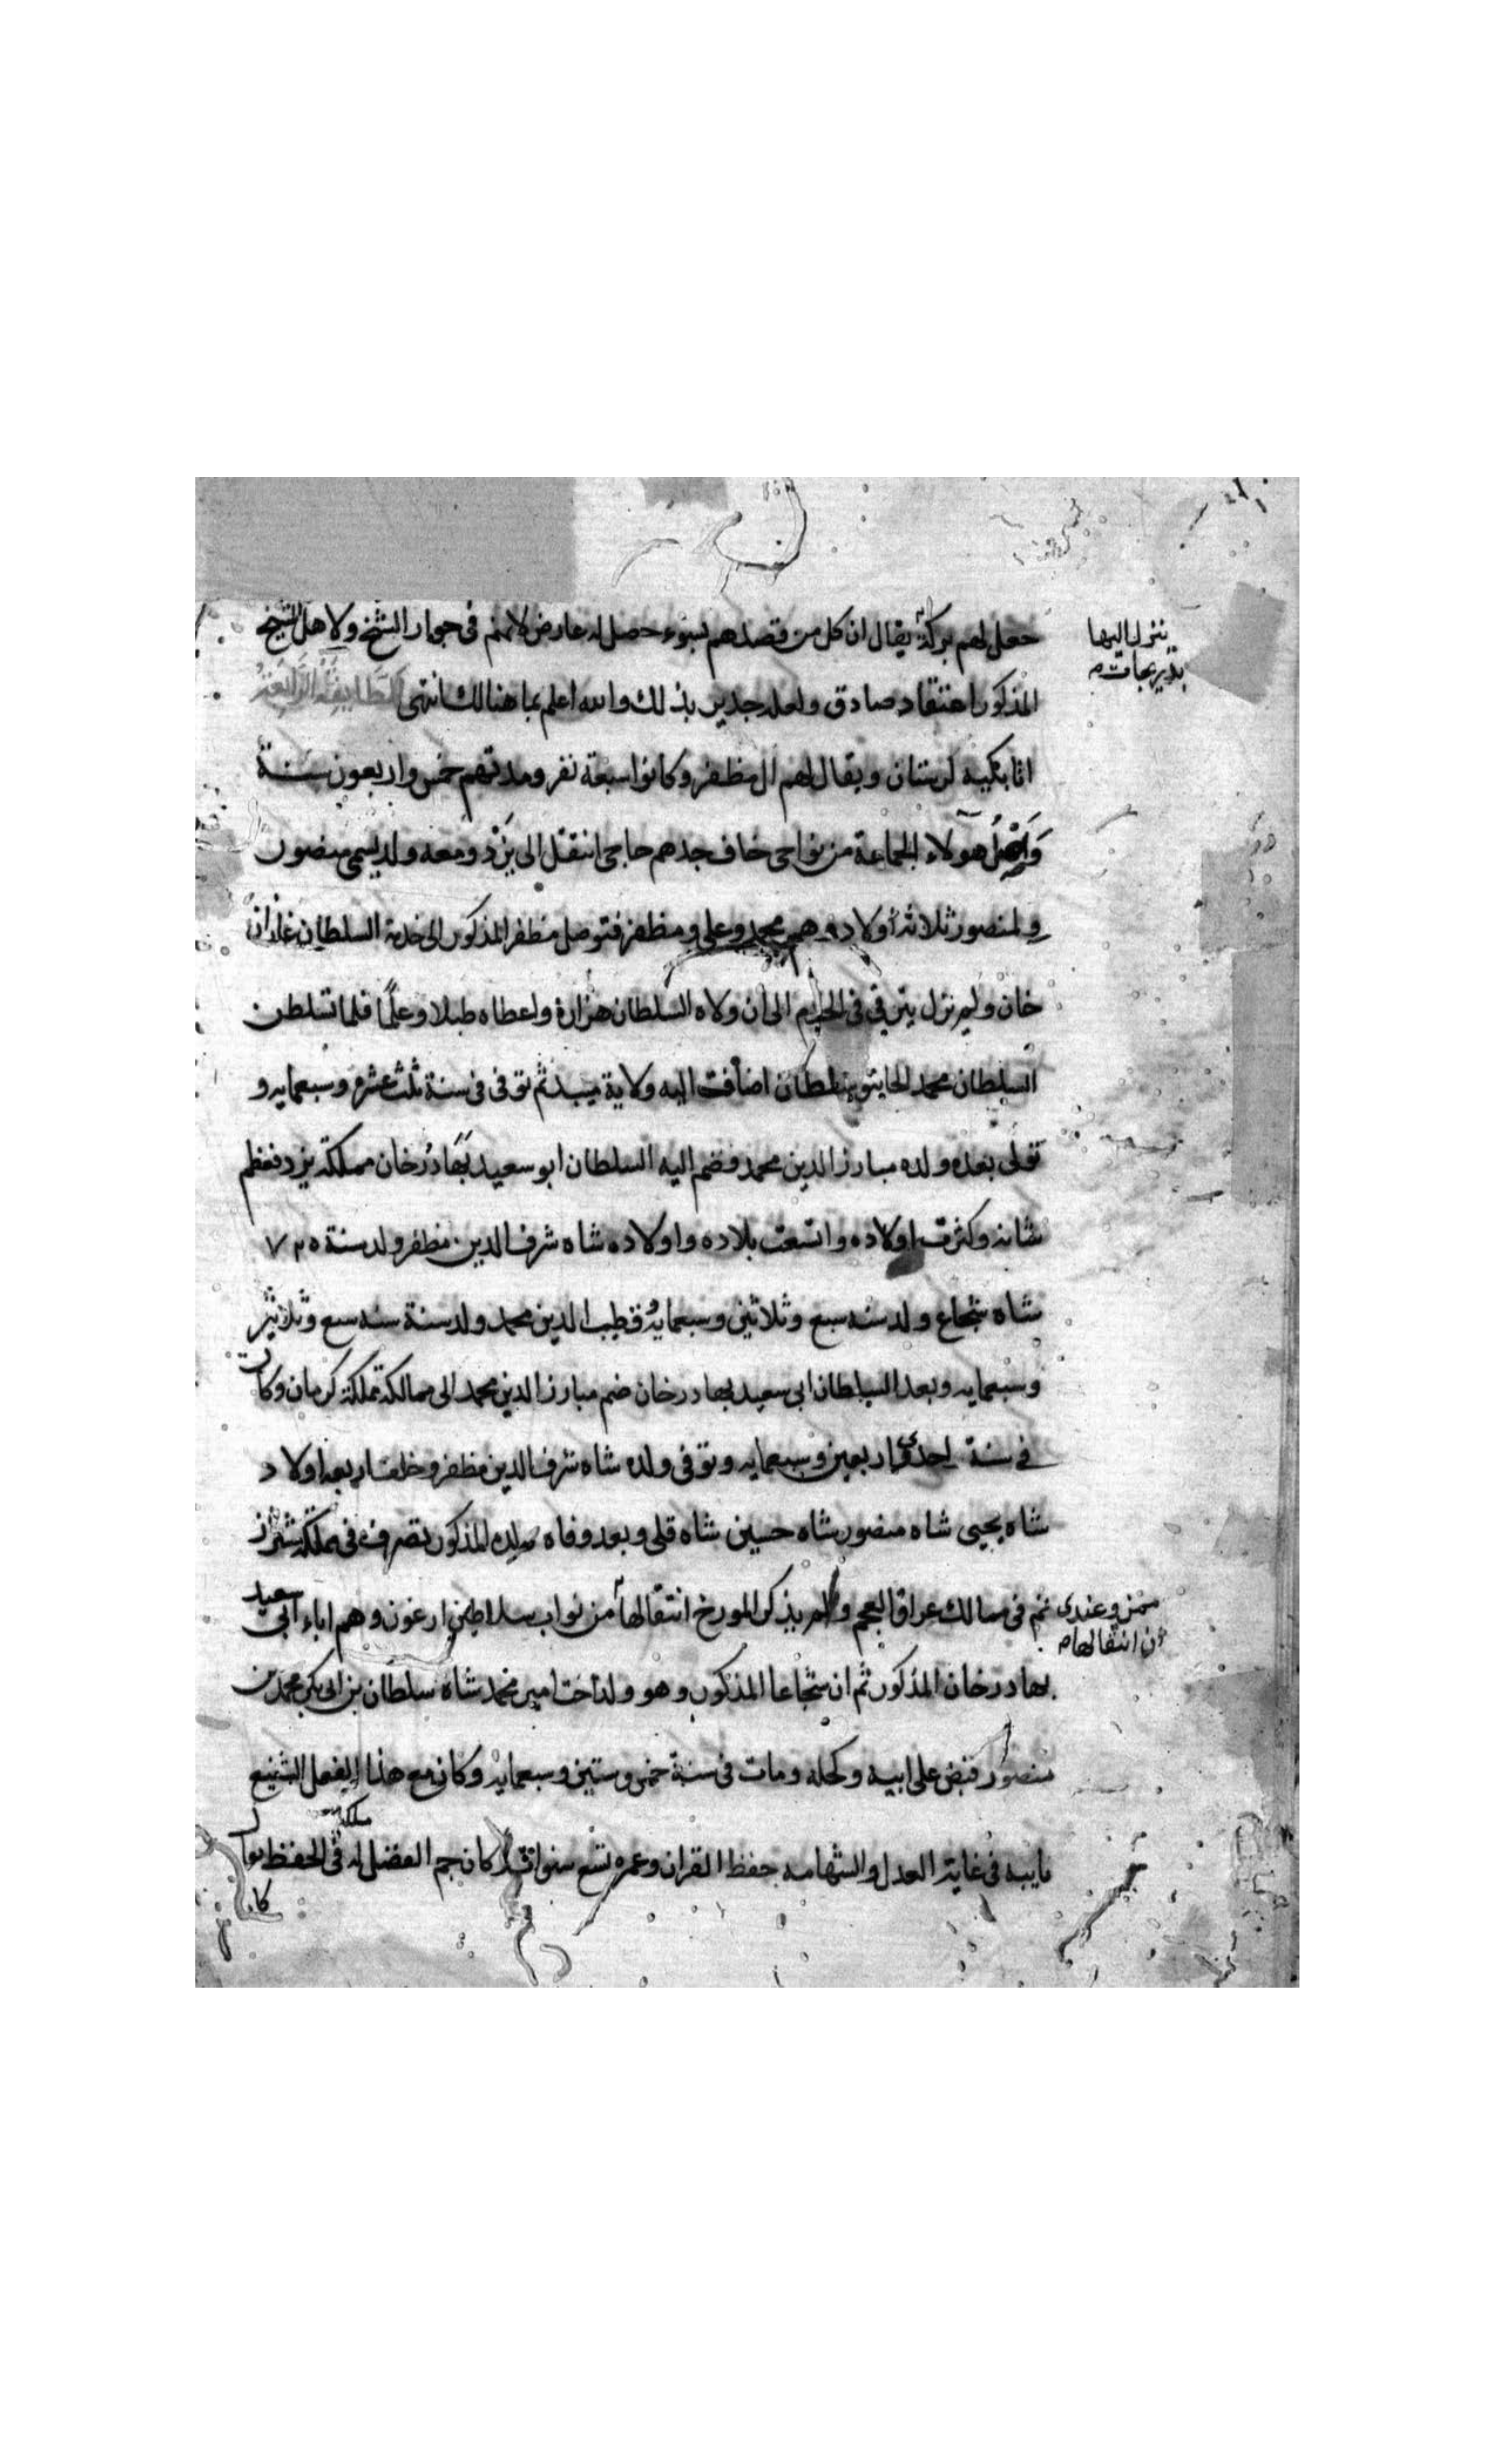 جعل لهم بركة يقال ان كل من قصدهم بسوء حصل له عارض لانهم في جوار الشيخ ولاهل الشيخ
ينزل اليها
بدريجات
المذكور اعتقاد صادق ولعله جدير بذلك والله اعلم بما هنالك انتهى الطايفة الرابعة
اتابكيه لرستان ويقال لهم ال مظفر وكانوا سبعة نفر ومدتهم خمس واربعون سنة
واصل هولاء الجماعة من نواحى خاف جدهم حاجى انتقل الى يزد ومعه ولد يسمى منصور
ولمنصور ثلاثة أولاد وهم محمد وعلى ومظفر فتوصل مظفر المذكور الى خدمة السلطان غازان
خان ولم نزل يترقي فى الخدم الى ان ولاه السلطان هزارة واعطاه طبلا وعلمًا فلما تسلطن
السلطان محمد الجايتو اضافت اليه ولاية ميبد ثم توفى فى سنة ثلث عشر وسبعمايه و
تولى بعده ولده مبارز الدين محمد فضم اليه السلطان ابو سعيد بهادرخان مملكة يزد فعظم
شانه وكثرت اولاده واتسعت بلاده واولاده شاه شرف الدين مظفر ولد سنة ٧٢٥
شاه شجاع ولد سنه سبع وثلاثين وسبعمايه قطب الدين محمد ولد سنة سنه سبع وثلاثين
وسبعمايه وبعد السلطان ابى سعيد بهادرخان ضم مبارز الدين محمد الى ممالكه مملكة كرمان وكان
في سنة احدى واربعين وسبعمايه وتوفى ولده شاه شرف الدين مظفر وخلف اربعة اولاد
شاه يحيى شاه منصور شاه حسين شاه قلى وبعد وفاة المذكور تصرف فى مملكة شيراز
ثم فى ممالك عراق العجم ولم يذكر المورخ انتقالها من نواب سلاطين ارغون وهم اباء ابى سعيد
وعندى
ان انتقالها
بهادرخان المذكور ثم ان شجاعا المذكور وهو ولد اخت امير محمد شاه سلطان بن ابى بكر محمد بن
منصور قبض على ابيه وكحله ومات فى سنة خمس وستين وسبعمايه وكان مع هذا الفعل الشنيع
بابيه فى غاية العدل والشهامه حفظ القران وعمره تسع سنوات كان جم الفضل له ملكة فى الحفظ
كان